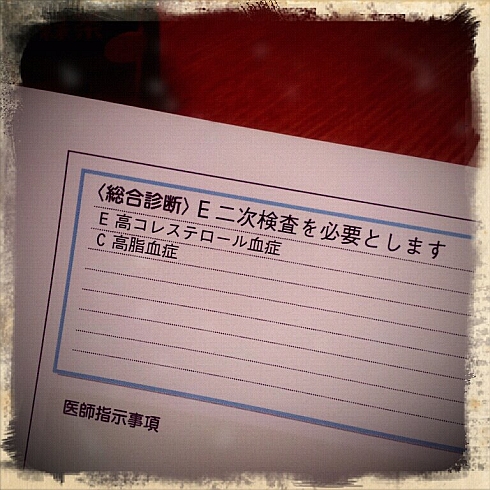 〈総合診断〉E 二次検査を必要とします
E 高コレステロール血症
C 高脂血症
医師指示事項